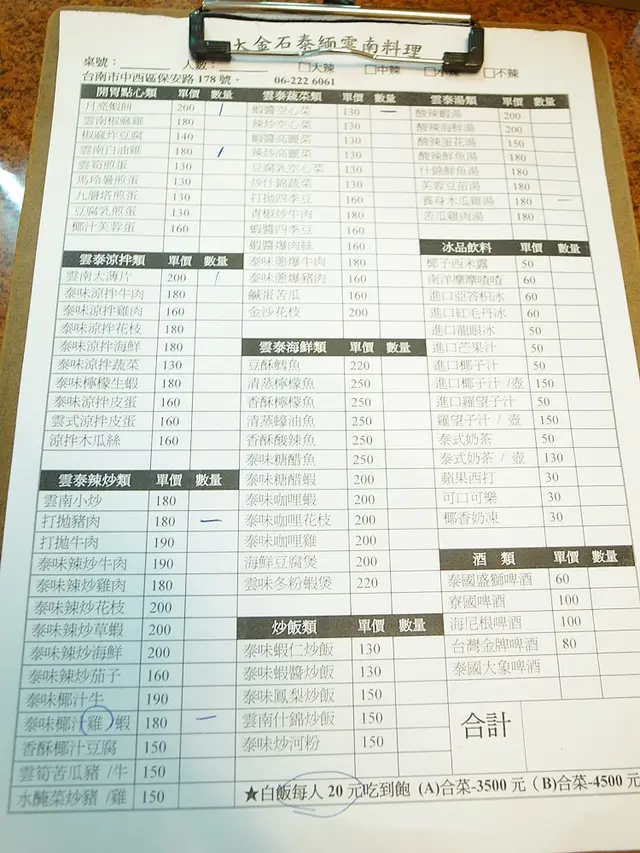 大金石泰緬雲南料理
桌號： 人數： □大辣 □中辣 □小辣 □不辣
台南市中西區保安路 178 號。 06-222 6061
開胃點心類 單價 數量
月亮蝦餅 200
雲南椒麻雞 180
椒麻炸豆腐 140
雲南白油雞 180
雲筍煎蛋 130
馬玲薯煎蛋 130
九層塔煎蛋 130
豆腐乳煎蛋 130
椰汁芙蓉蛋 160
雲泰涼拌類 單價 數量
雲南大薄片 200
泰味涼拌牛肉 180
泰味涼拌雞肉 160
泰味涼拌花枝 180
泰味涼拌海鮮 180
泰味涼拌蔬菜 130
泰味檸檬生蝦 180
泰味涼拌皮蛋 160
雲式涼拌皮蛋 160
涼拌木瓜絲 160
雲泰辣炒類 單價 數量
雲南小炒 180
打拋豬肉 180 一
打拋牛肉 190
泰味辣炒牛肉 190
泰味辣炒雞肉 180
泰味辣炒花枝 200
泰味辣炒草蝦 200
泰味辣炒海鮮 200
泰味辣炒茄子 160
泰味椰汁牛 190
泰味椰汁雞/蝦 180 一
香酥椰汁豆腐 150
雲筍苦瓜豬 /牛 150
水醃菜炒豬 /雞 150
雲泰蔬菜類 單價 數量
蝦醬空心菜 130 一
辣炒空心菜 130
蝦醬高麗菜 130
辣炒高麗菜 130
豆腐乳空心菜 130
炒什錦蔬菜 130
打拋四季豆 160
青椒炒牛肉 180
蝦醬四季豆 160
蝦醬爆肉絲 160
泰味蔥爆牛肉 180
泰味蔥爆豬肉 160
鹹蛋苦瓜 160
金沙花枝 200
雲泰海鮮類 單價 數量
豆酥鱈魚 220
清蒸檸檬魚 250
香酥檸檬魚 250
清蒸蠔油魚 250
香酥酸辣魚 250
泰味糖醋魚 250
泰味糖醋蝦 200
泰味咖哩蝦 200
泰味咖哩花枝 200
泰味咖哩雞 200
海鮮豆腐煲 200
雲味冬粉蝦煲 220
炒飯類 單價 數量
泰味蝦仁炒飯 130
泰味蝦醬炒飯 130
泰味鳳梨炒飯 150
雲南什錦炒飯 150
泰味炒河粉 150
雲泰湯類 單價 數量
酸辣蝦湯 200
酸辣海鮮湯 200
酸辣蛋花湯 150
酸辣鮮魚湯 180
什錦鮮魚湯 180
芙蓉豆苗湯 180
養身木瓜雞湯 180 一
苦瓜雞肉湯 180
冰品飲料 單價 數量
椰子西米露 50
南洋摩摩喳喳 60
進口亞答枳冰 60
進口紅毛丹冰 60
進口龍眼冰 50
進口芒果汁 50
進口椰子汁 50
進口椰子汁 /壺 150
進口羅望子汁 50
羅望子汁 / 壺 150
泰式奶茶 50
泰式奶茶 / 壺 130
蘋果西打 30
可口可樂 30
椰香奶凍 30
酒 類 單價 數量
泰國盛獅啤酒 60
寮國啤酒 100
海尼根啤酒 100
台灣金牌啤酒 80
泰國大象啤酒
合計
★白飯每人 20 元吃到飽 (A)合菜-3500 元 (B)合菜-4500 元